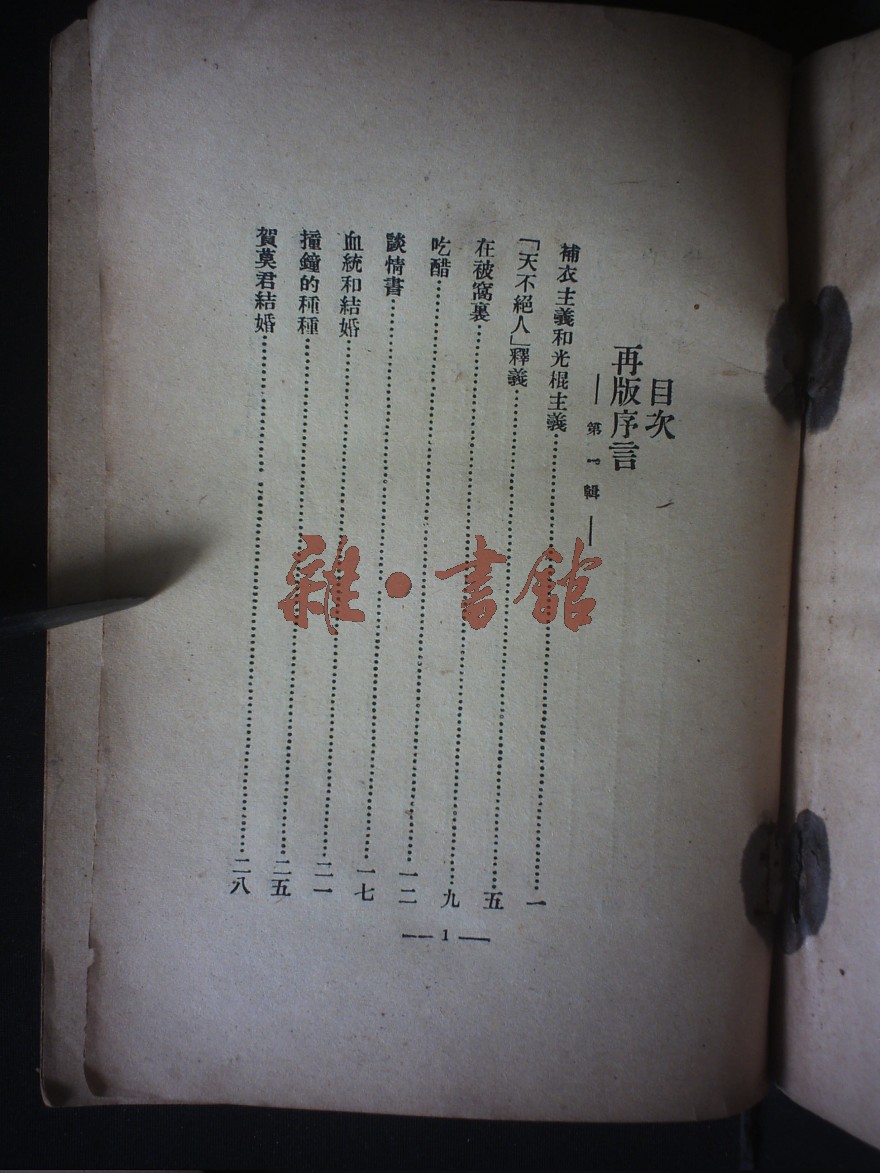 目次
再版序言
——第一輯——
補衣主義和光棍主義……一
「天不絕人」釋義……五
在被窩裏……九
吃醋……一二
談情書……一七
血統和結婚……二一
撞鐘的種種……二五
賀莫君結婚……二八
—1—
雜·書館